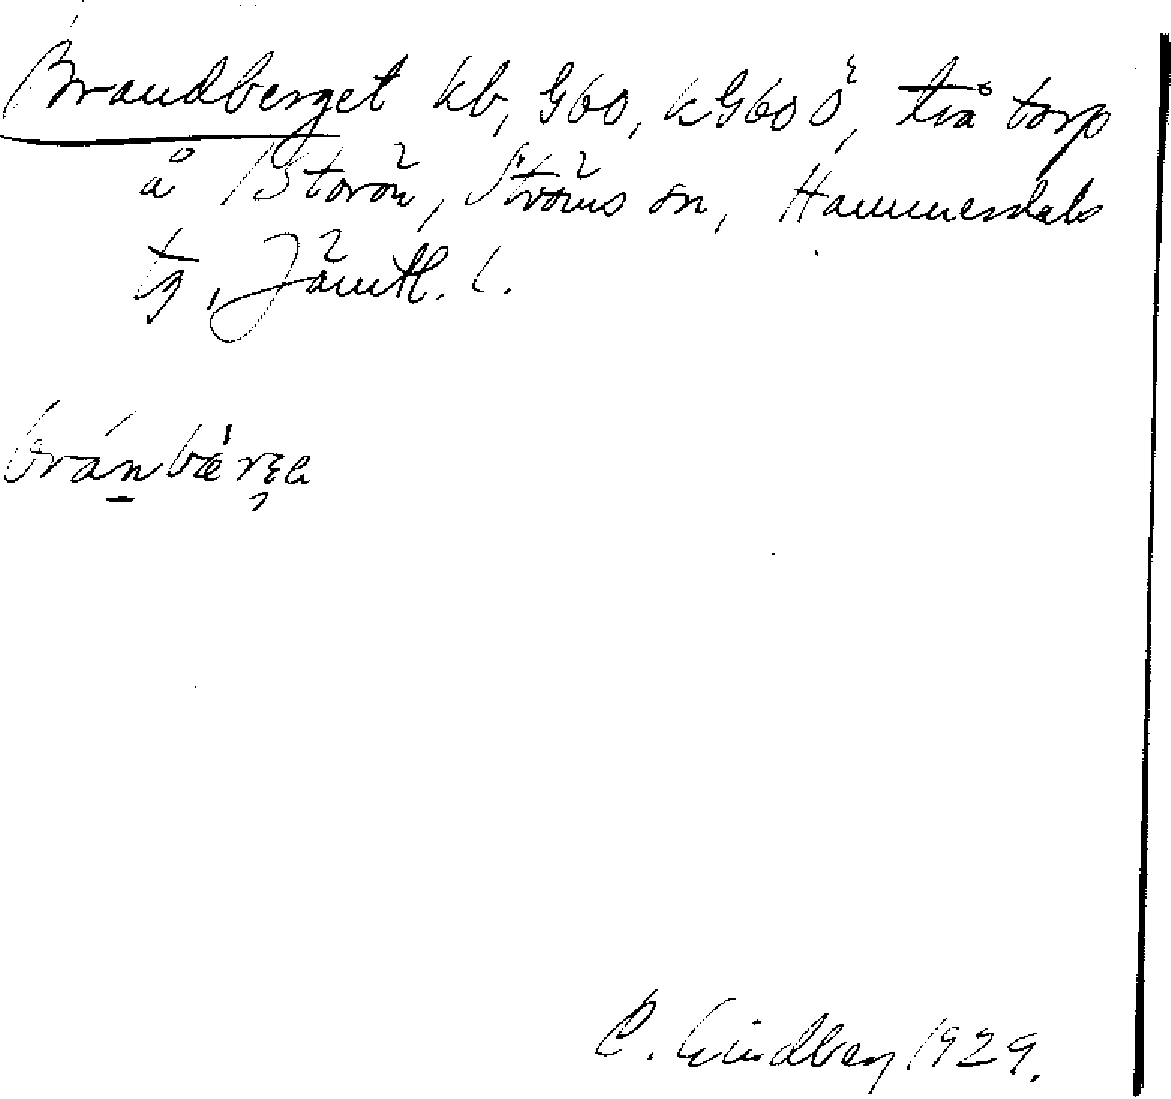 Brandberget kb, Gbo, kGbo Ö, två torp
å 1 Storön, Ströms sn, Hammerdals
tg, Jämtl. l.
bránbær
C. Lindberg 1929.